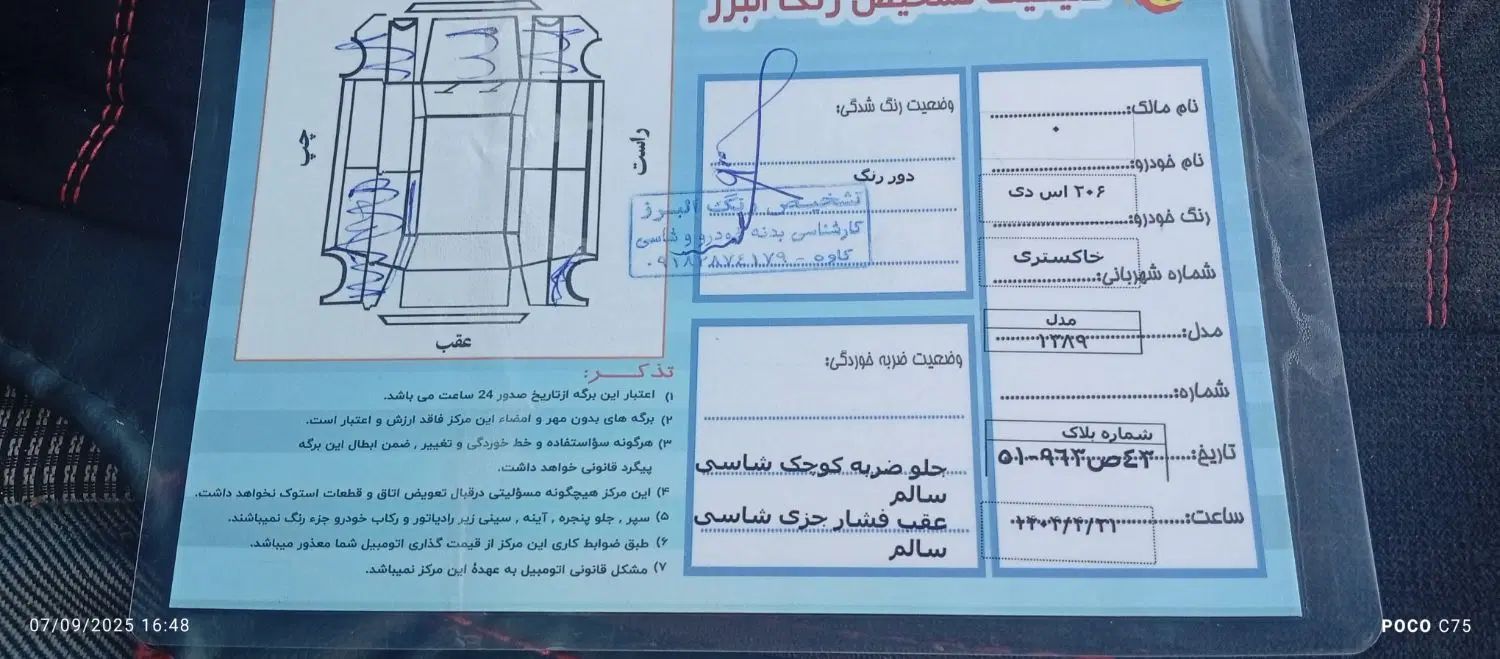 تشخیص رنگ البرز
نام مالک:
نام خودرو:
۲۰۶ اس دی
رنگ خودرو:
خاکستری
شماره شهربانی:
مدل
مدل:
۱۳۸۹
شماره:
شماره پلاک
تاریخ:
۵۱-۹۶۳ص۴۳
ساعت:
۱۴۰۴/۴/۳۱
وضعیت رنگ شدگی:
دور رنگ
تشخیص رنگ البرز
کارشناسی بدنه خودرو و شاسی
کاوه -
وضعیت ضربه خوردگی:
جلو ضربه کوچک شاسی
سالم
عقب فشار جزی شاسی
سالم
چپ
راست
عقب
تذکر:
۱) اعتبار این برگه ازتاریخ صدور 24 ساعت می باشد.
۲) برگه های بدون مهر و امضاء این مرکز فاقد ارزش و اعتبار است.
۳) هرگونه سؤاستفاده و خط خوردگی و تغییر , ضمن ابطال این برگه
پیگرد قانونی خواهد داشت.
۴) این مرکز هیچگونه مسؤلیتی درقبال تعویض اتاق و قطعات استوک نخواهد داشت.
۵) سپر , جلو پنجره , آینه , سینی زیر رادیاتور و رکاب خودرو جزء رنگ نمیباشند.
۶) طبق ضوابط کاری این مرکز از قیمت گذاری اتومبیل شما معذور میباشد.
۷) مشکل قانونی اتومبیل به عهدۀ این مرکز نمیباشد.
07/09/2025 16:48
POCO C75